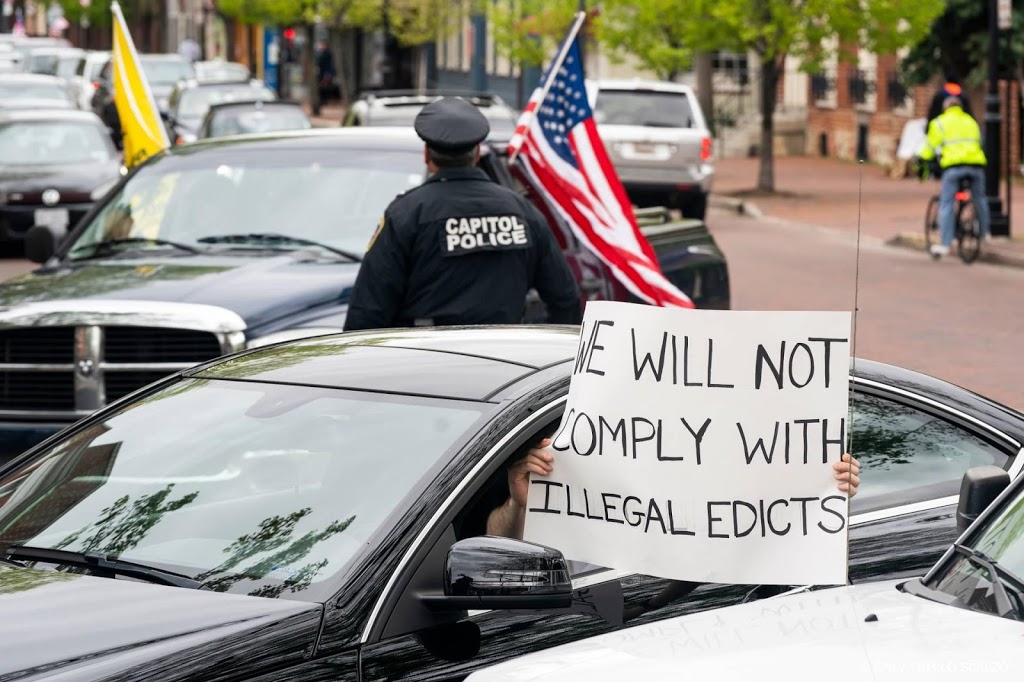 CAPITOL
POLICE
WE WILL NOT
COMPLY WITH
ILLEGAL EDICTS